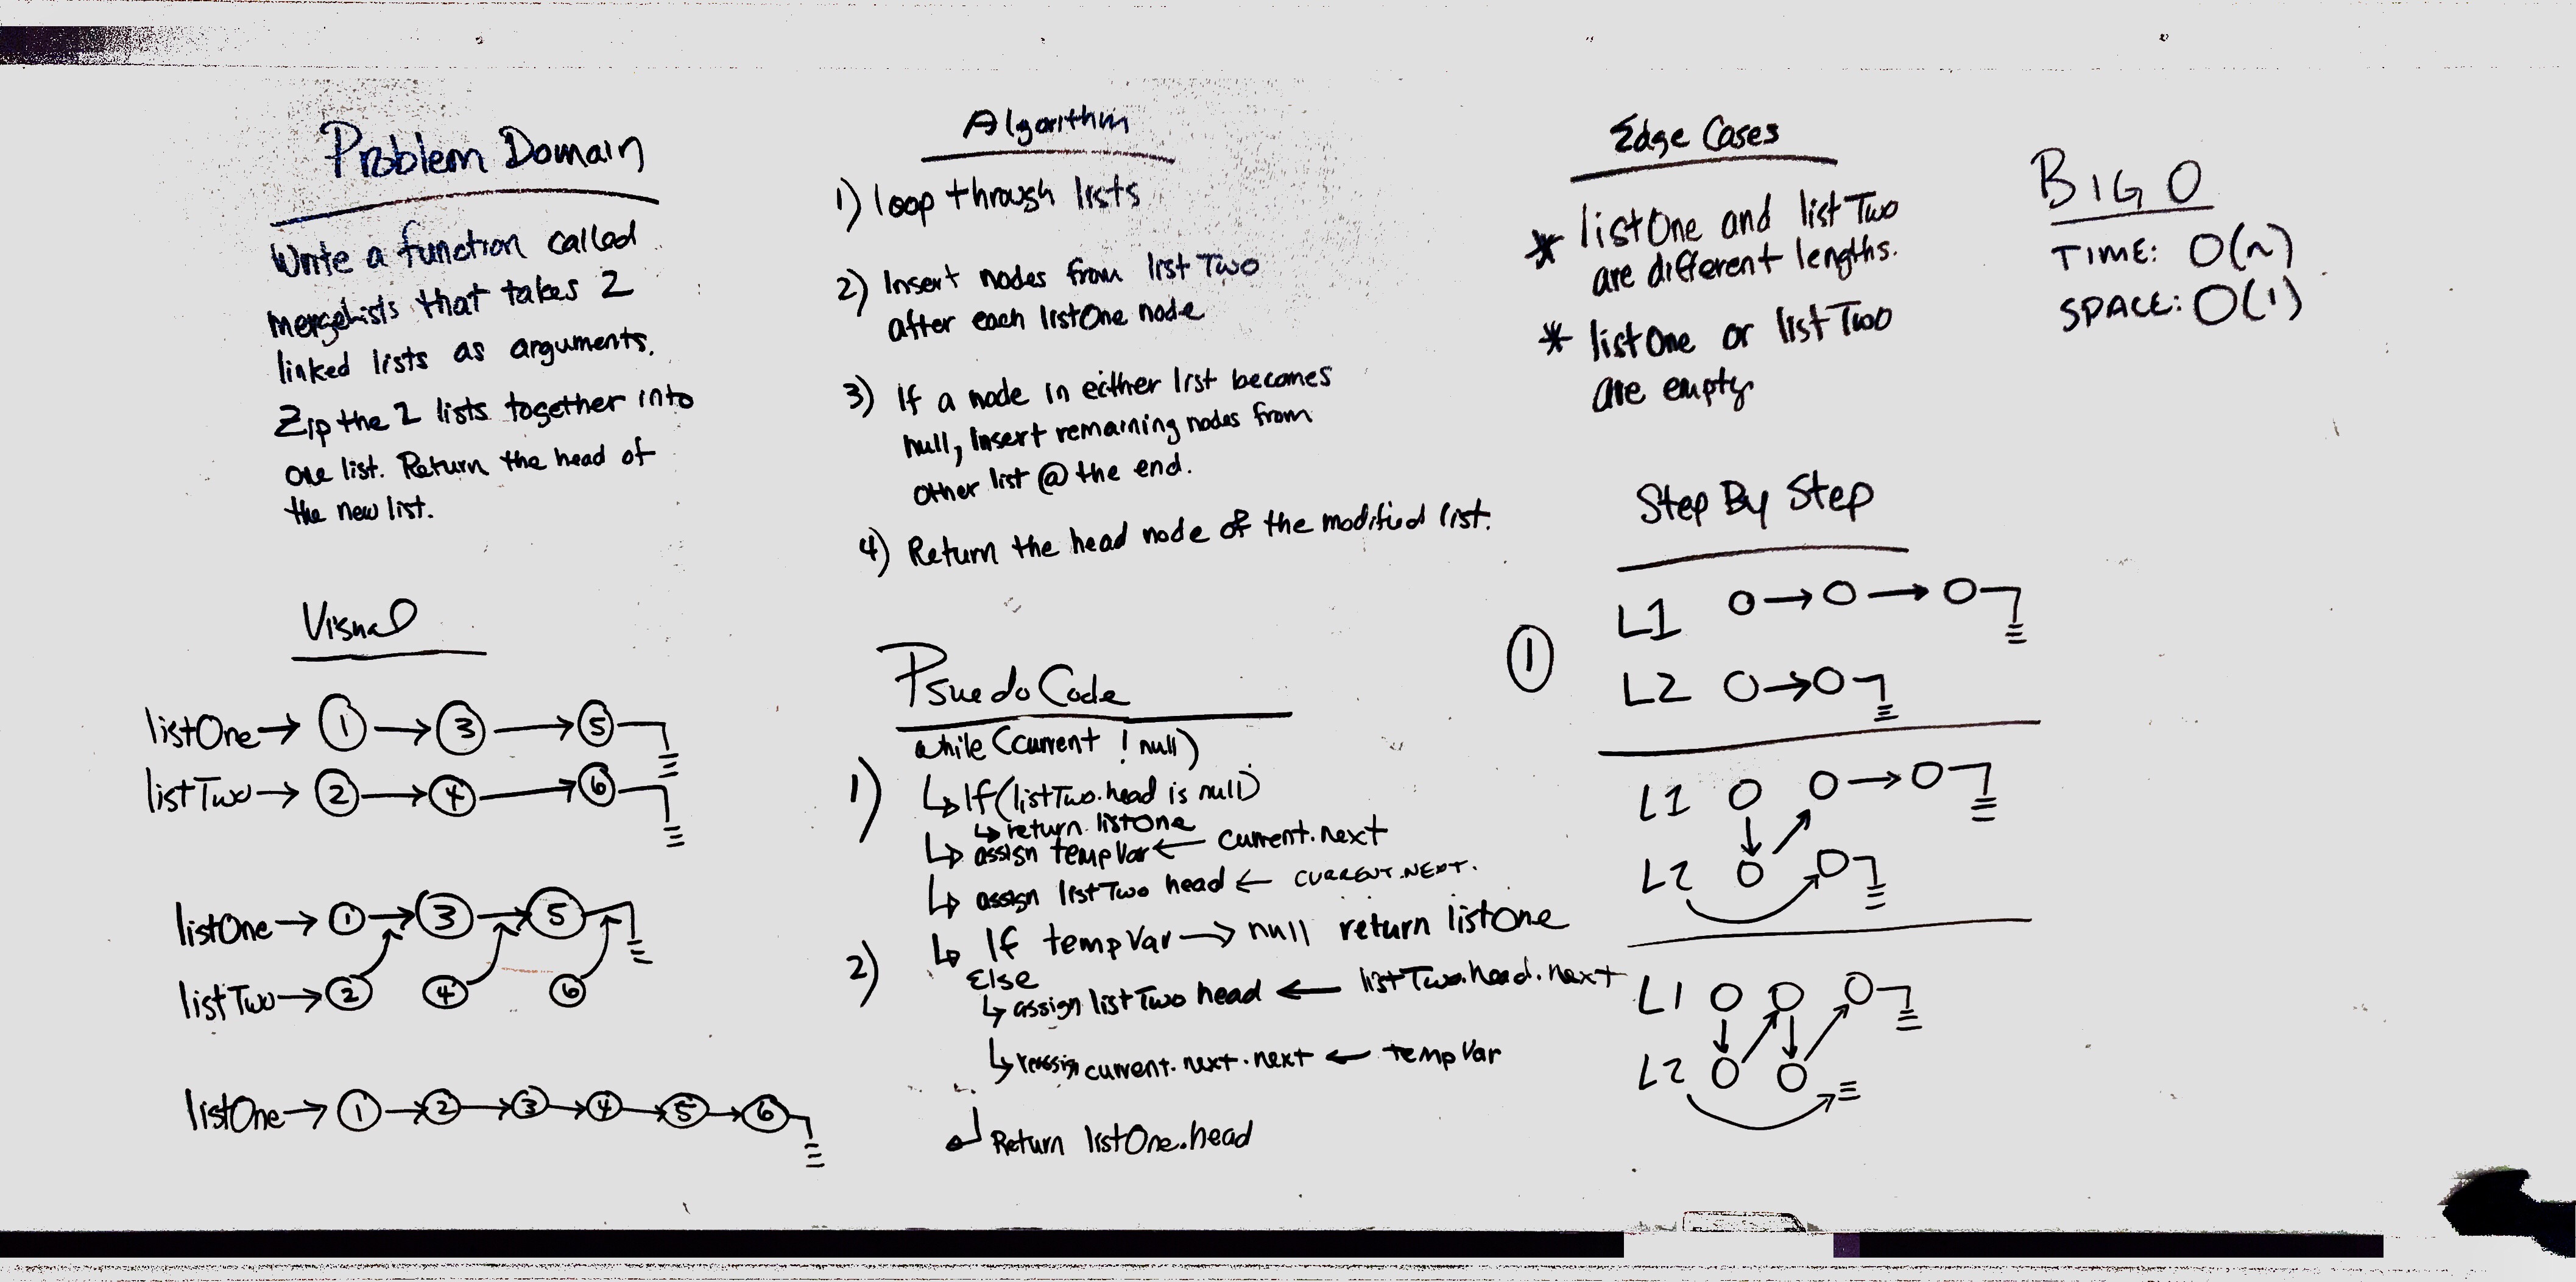 Problem Domain
Write a function called
mergeLists that takes 2
linked lists as arguments.
Zip the 2 lists together into
one list. Return the head of
the new list.
Visual
listOne → 1 → 3 → 5
listTwo → 2 → 4 → 6
listOne → 1 → 3 → 5
listTwo → 2 4 6
listOne → 1 → 2 → 3 → 4 → 5 → 6
Algorithm
1) loop through lists
2) Insert nodes from listTwo
after each listOne node
3) If a node in either list becomes
null, insert remaining nodes from
other list @ the end.
4) Return the head node of the modified list.
PsuedoCode
while (current ! null)
1) ↳ If (listTwo.head is null)
↳ return listOne
↳ assign tempVar ← current.next
↳ assign listTwo head ← CURRENT.NEXT.
2) ↳ If tempVar → null return listOne
Else
↳ assign listTwo head ← listTwo.head.next
↳ reassign current.next.next ← tempVar
Return listOne.head
Edge Cases
* listOne and listTwo
are different lengths.
* listOne or listTwo
are empty
BIG O
TIME: O(n)
SPACE: O(1)
Step By Step
1
L1
L2
L1
L2
L1
L2